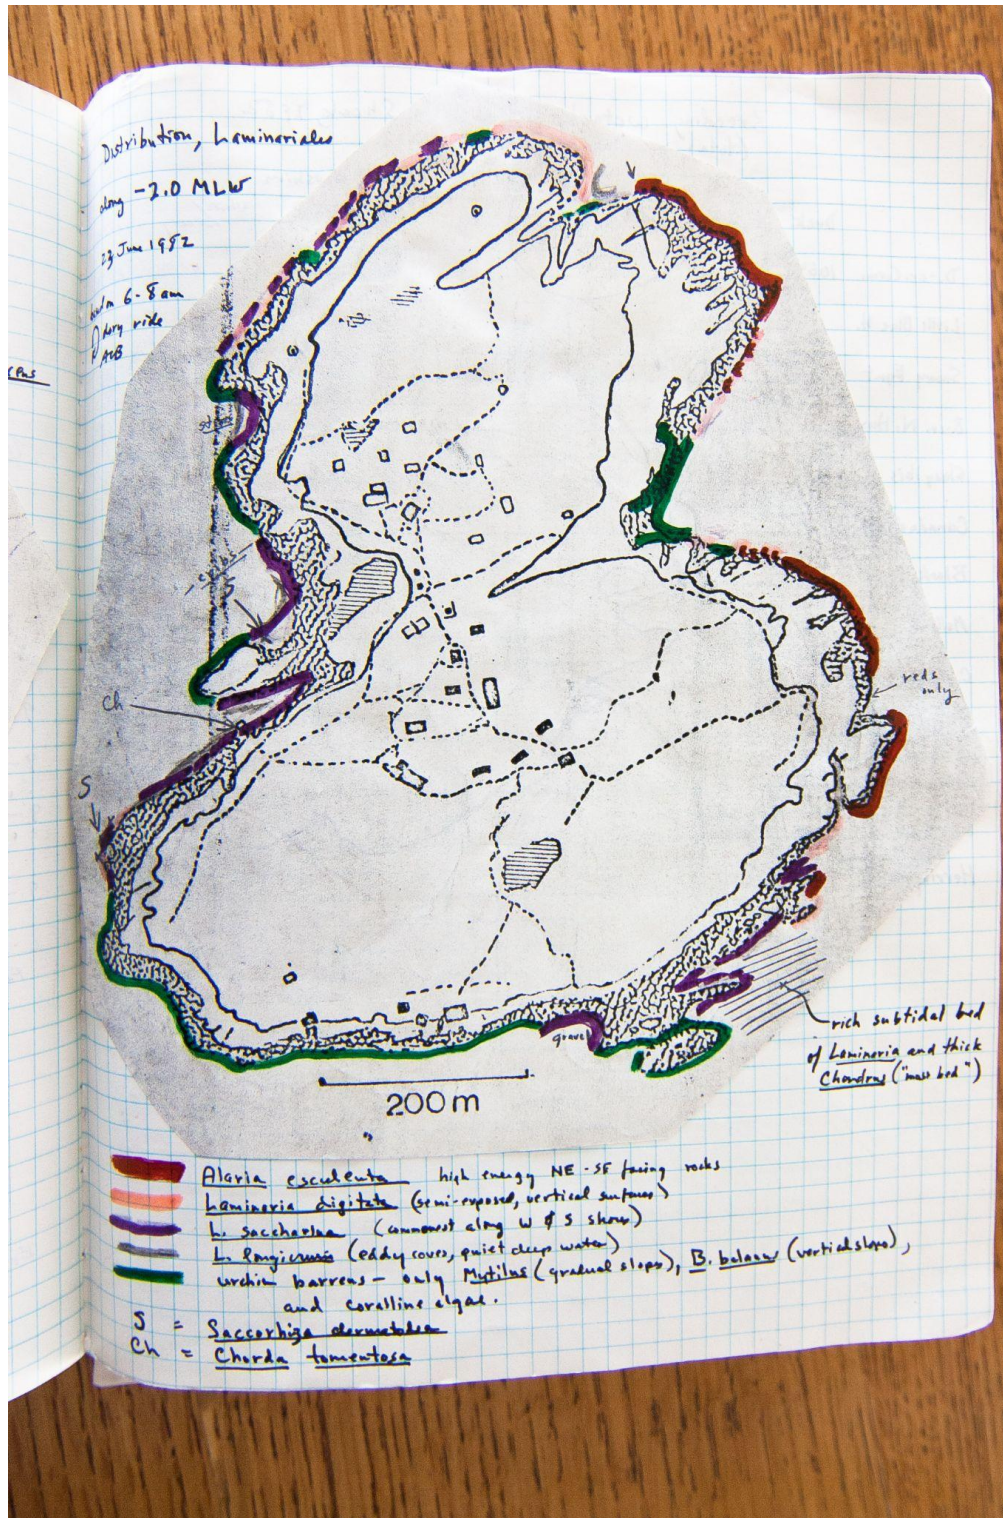 Distribution, Laminariales
along -2.0 MLW
23 June 1982
6-8 am
dory ride
Ch
S
reds
only
gravel
rich subtidal bed
of Laminaria and thick
Chondrus ("moss bed")
200m
Alaria esculenta high energy NE-SE facing rocks
Laminaria digitata (semi-exposed, vertical surfaces)
L. saccharina (commonest along W & S shore)
L. longicruris (eddy coves, quiet deep water)
urchin barrens - only Mytilus (gradual slope), B. balanus (vertical slope),
and coralline algae.
S = Saccorhiza dermatodea
Ch = Chorda tomentosa